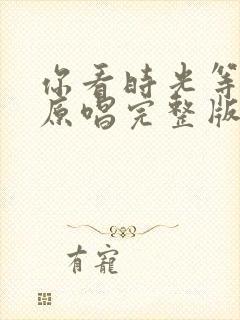 你看时光等
原唱完整版
有宠